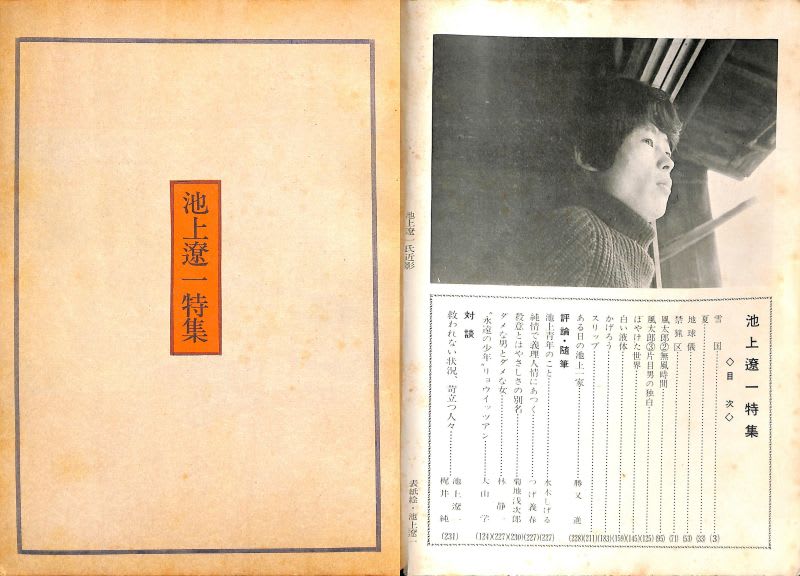 池上遼一特集
池上遼一特集
◇目次◇
雪国……(3)
夏……(33)
地球儀……(53)
禁猟区……(71)
風太郎②無風時間……(95)
風太郎③片目男の独白……(125)
ぼやけた世界……(145)
白い液体……(159)
かげろう……(183)
スリップ……(211)
ある日の池上一家……勝又進(228)
評論・随筆
池上青年のこと……水木しげる(227)
純情で義理人情にあつく……つげ義春(227)
殺意とはやさしさの別名……菊地浅次郎(230)
ダメな男とダメな女……林静一(227)
“永遠の少年”リョウイッツアン……大山学(124)
対談
救われない状況、苛立つ人々……池上遼一
梶井純(231)
池上遼一氏近影
表紙絵・池上遼一